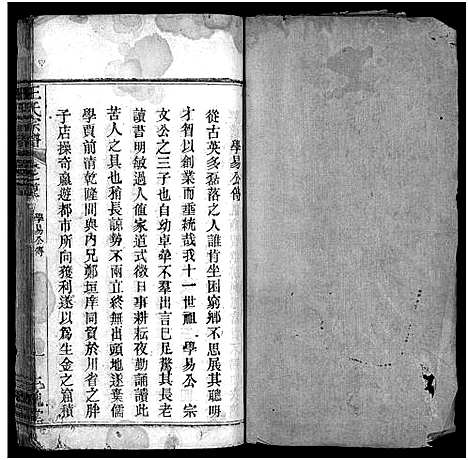 學易公傳
從古英多磊落之人誰肯坐困窮鄉不思展其聰明
才智以創業而垂統哉我十一世祖 學易公 宗
文公之三子也自幼卓犖不羣出言已足驚其長老
讀書明敏過人值家道式微日事耕耘夜勤誦讀此
苦人之具也稍長諒勢不兩立終無出頭地遂葉儒
學賈前清乾隆間與內兄鄭垣庠同貿於川省之胖
子店操奇贏遊都市所向獲利遂以為生金之窟積
王氏宗譜
學易公傳